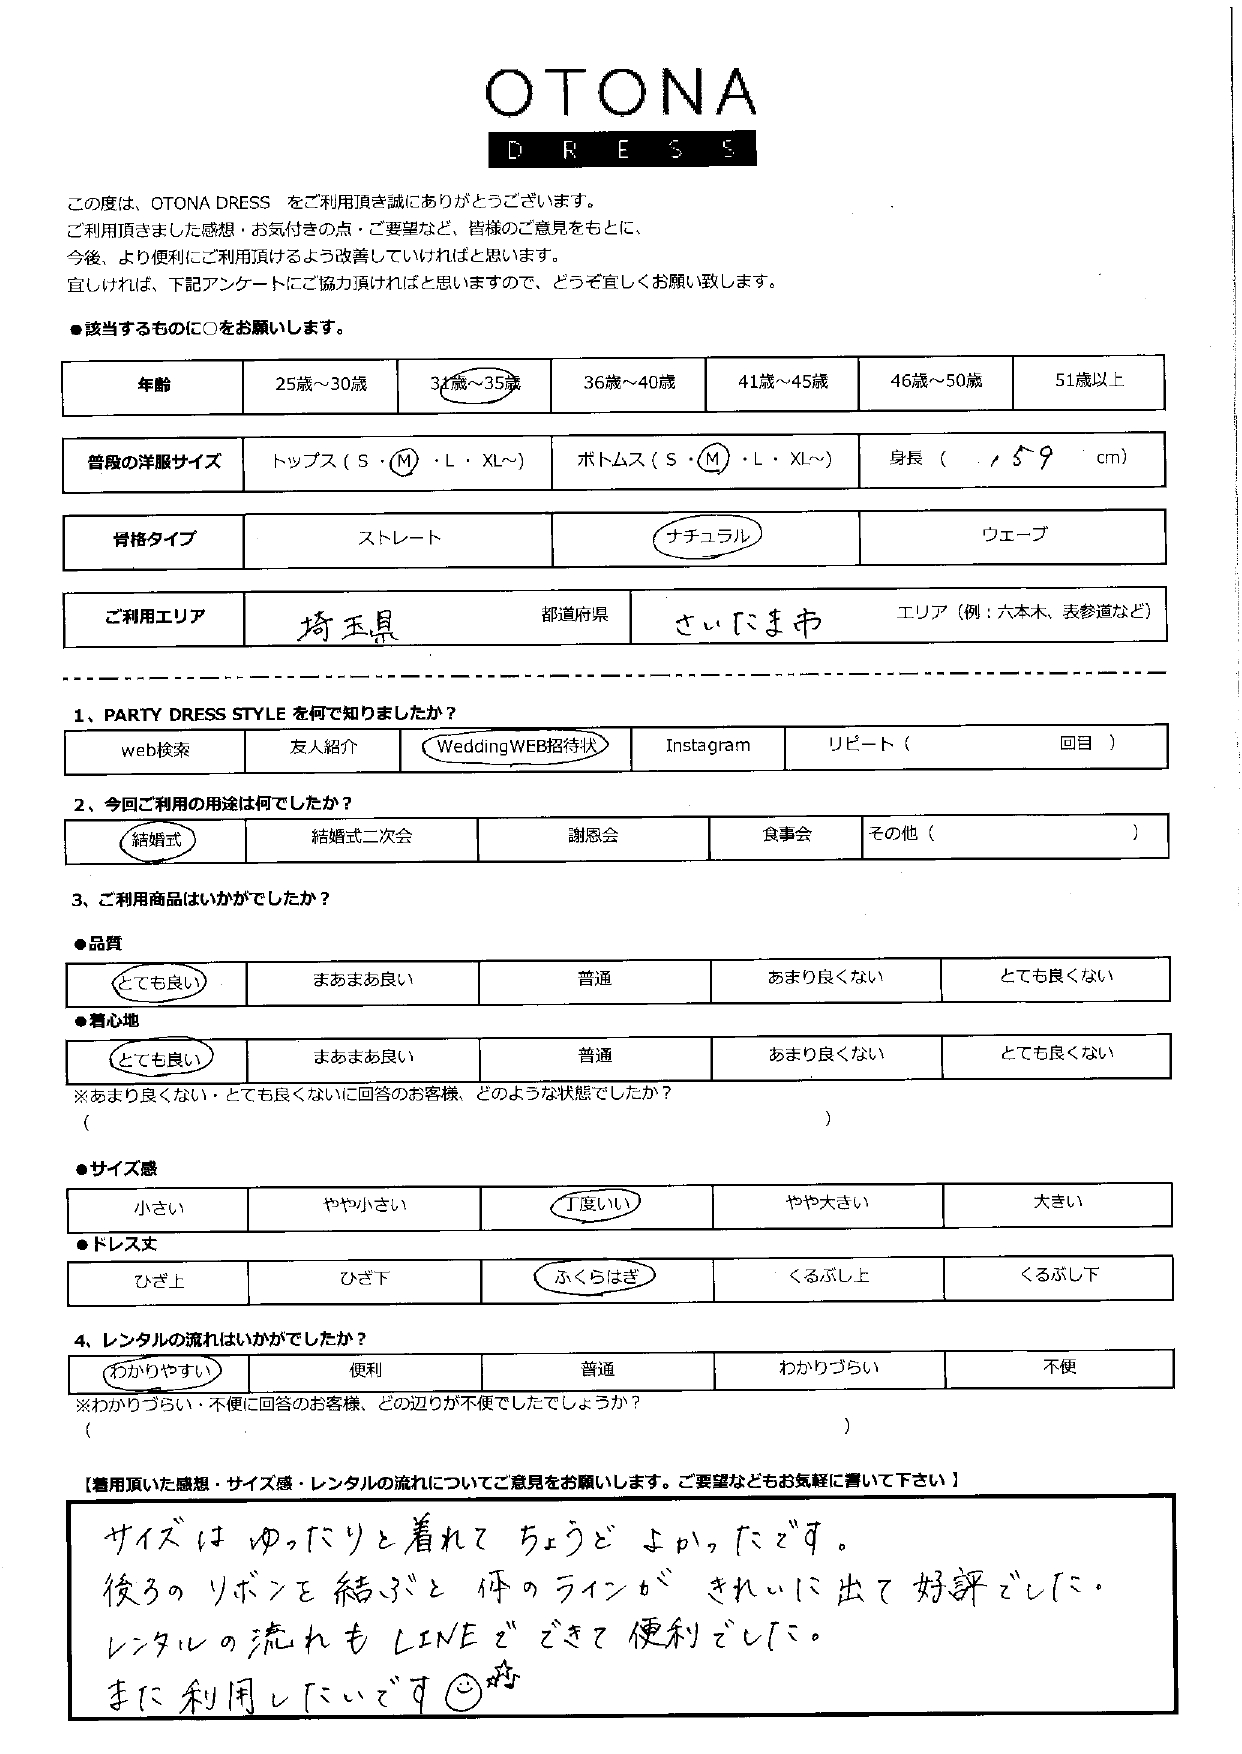 OTONA
DRESS
この度は、OTONA DRESS をご利用頂き誠にありがとうございます。
ご利用頂きました感想・お気付きの点・ご要望など、皆様のご意見をもとに、
今後、より便利にご利用頂けるよう改善していければと思います。
宜しければ、下記アンケートにご協力頂ければと思いますので、どうぞ宜しくお願い致します。
●該当するものに○をお願いします。
年齢 25歳～30歳 31歳～35歳 36歳～40歳 41歳～45歳 46歳～50歳 51歳以上
普段の洋服サイズ トップス ( S ・ M ・ L ・ XL～) ボトムス ( S ・ M ・ L ・ XL～) 身長 ( 159 cm)
骨格タイプ ストレート ナチュラル ウェーブ
ご利用エリア 埼玉県 都道府県 さいたま市 エリア（例：六本木、表参道など）
1、PARTY DRESS STYLE を何で知りましたか？
web検索 友人紹介 WeddingWEB招待状 Instagram リピート（ 回目 ）
2、今回ご利用の用途は何でしたか？
結婚式 結婚式二次会 謝恩会 食事会 その他（ ）
3、ご利用商品はいかがでしたか？
●品質
とても良い まあまあ良い 普通 あまり良くない とても良くない
●着心地
とても良い まあまあ良い 普通 あまり良くない とても良くない
※あまり良くない・とても良くないに回答のお客様、どのような状態でしたか？
（ ）
●サイズ感
小さい やや小さい 丁度いい やや大きい 大きい
●ドレス丈
ひざ上 ひざ下 ふくらはぎ くるぶし上 くるぶし下
4、レンタルの流れはいかがでしたか？
わかりやすい 便利 普通 わかりづらい 不便
※わかりづらい・不便に回答のお客様、どの辺りが不便でしたでしょうか？
（ ）
【着用頂いた感想・サイズ感・レンタルの流れについてご意見をお願いします。ご要望などもお気軽に書いて下さい 】
サイズは ゆったりと着れて ちょうど よかったです。
後ろの リボンを 結ぶと 体のラインが きれいに 出て 好評でした。
レンタルの流れも LINEで できて 便利でした。
また 利用したいです